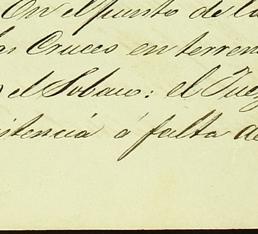 On el punto de la
las Cruces en terren
el Sobaco: el Juez
istencia á falta de